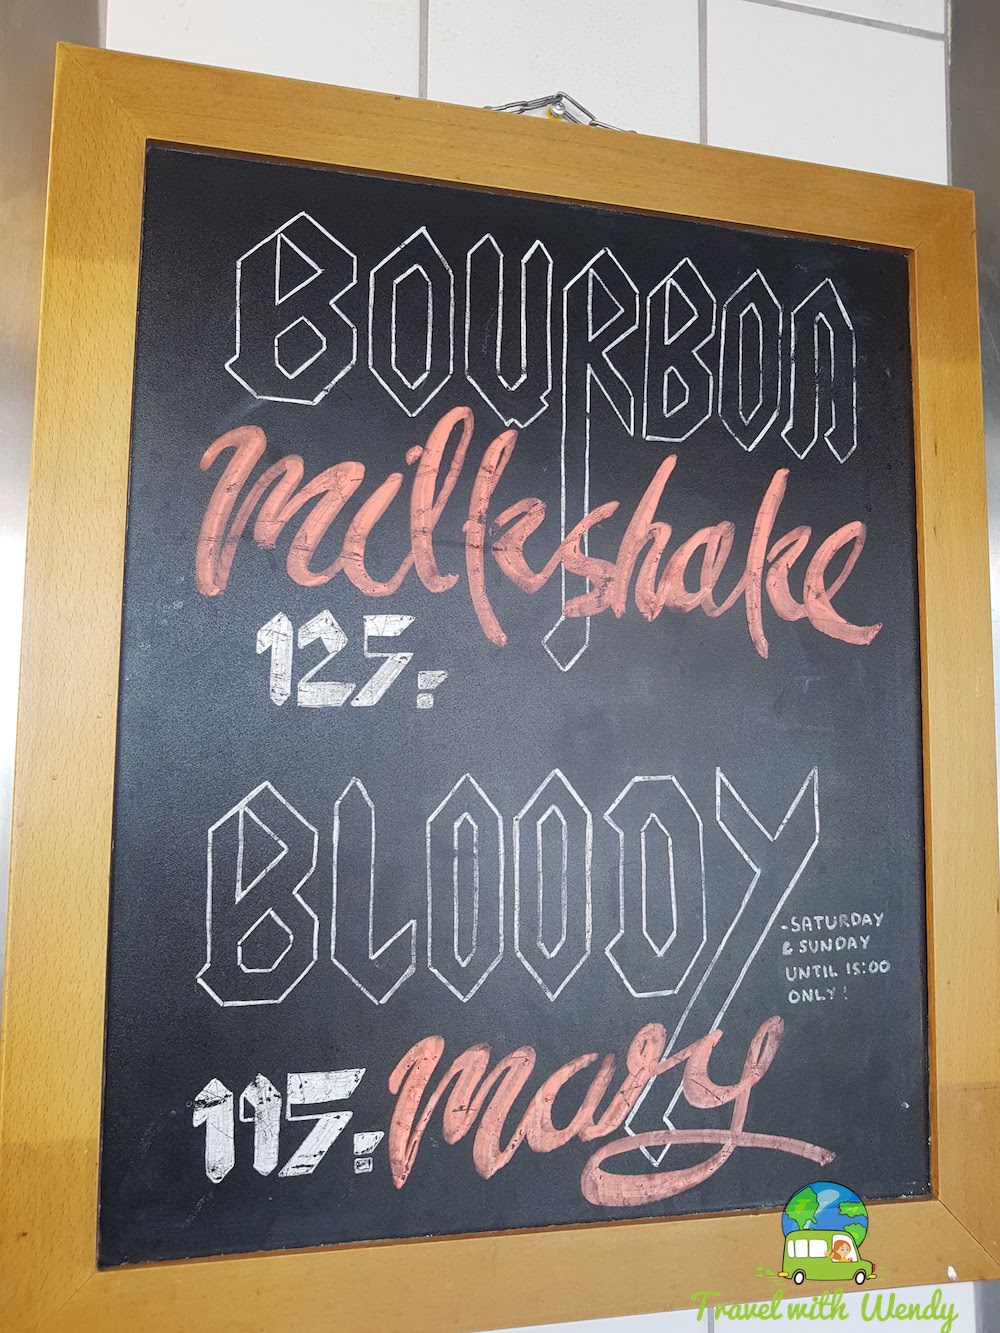 BOURBON
milkshake
125:-
BLOODY
-SATURDAY
& SUNDAY
UNTIL 15:00
ONLY!
115:-
mary
Travel with Wendy